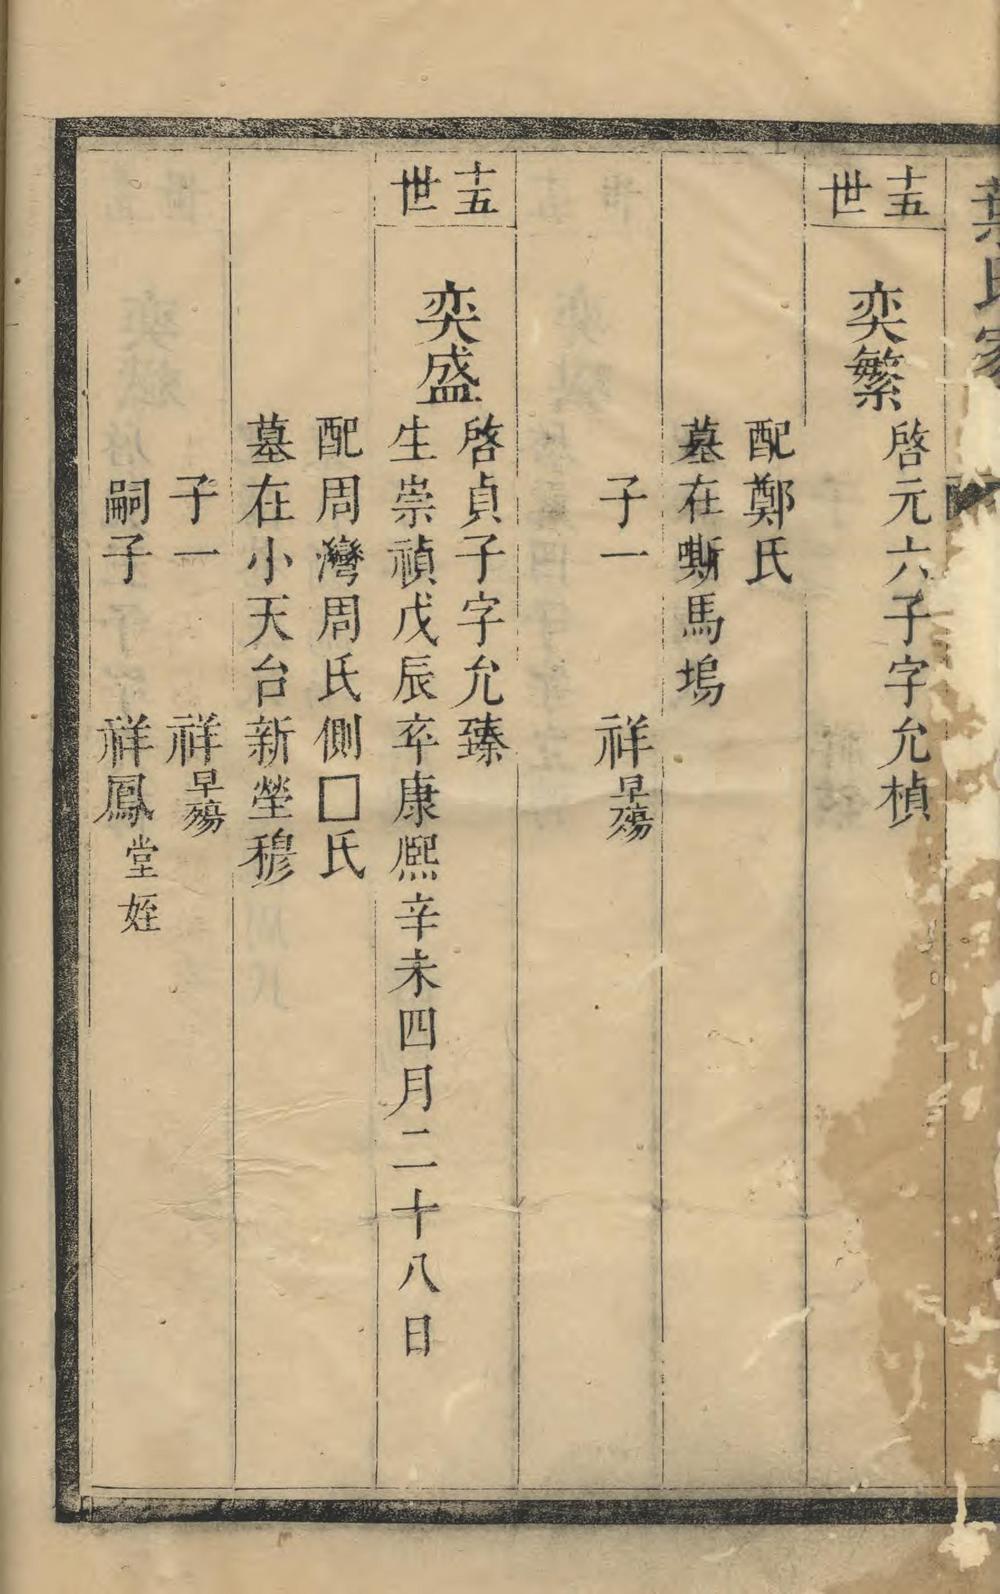 葉氏家
十五世
奕繁
啓元六子字允楨
配鄭氏
墓在嘶馬塢
子一
祥早殤
十五世
奕盛
啓貞子字允臻
生崇禎戊辰卒康熙辛未四月二十八日
配周灣周氏側□氏
墓在小天台新塋穆
子一
祥早殤
嗣子
祥鳳堂姪